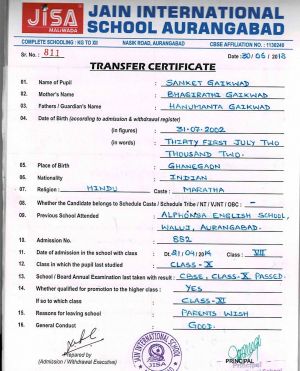 JISA
MALIWADA
JAIN INTERNATIONAL
SCHOOL AURANGABAD
COMPLETE SCHOOLING : KG TO XII NASIK ROAD, AURANGABAD CBSE AFFILIATION NO. : 1130249
Sr. No. : 811 Date : 30/06/2018
TRANSFER CERTIFICATE
01. Name of Pupil SANKET GAIKWAD
02. Mother's Name BHAGIRATHI GAIKWAD
03. Fathers / Guardian's Name HANUMANTA GAIKWAD
04. Date of Birth (according to admission & withdrawal register)
(in figures) 31-07-2002
(in words) THIRTY FIRST JULY TWO
THOUSAND TWO.
05. Place of Birth GHANEGAON
06. Nationality INDIAN
07. Religion : HINDU Caste : MARATHA
08. Whether the Candidate belongs to Schedule Caste / Schedule Tribe / NT / VJNT / OBC : -
09. Previous School Attended ALPHONSA ENGLISH SCHOOL,
WALUJ, AURANGABAD.
10. Admission No. 882
11. Date of admission in the school with class Dt. 21.04.2014 Class VII
12. Class in which the pupil last studied CLASS-X
13. School / Board Annual Examination last taken with result : CBSE, CLASS-X PASSED.
14. Whether qualified for promotion to the higher class : YES
If so to which class CLASS-XI
15. Reasons for leaving school PARENTS WISH
16. General Conduct GOOD.
Prepared by
(Admission / Withdrawal Executive)
JAIN INTERNATIONAL SCHOOL
JISA
PRINCIPAL
Principal